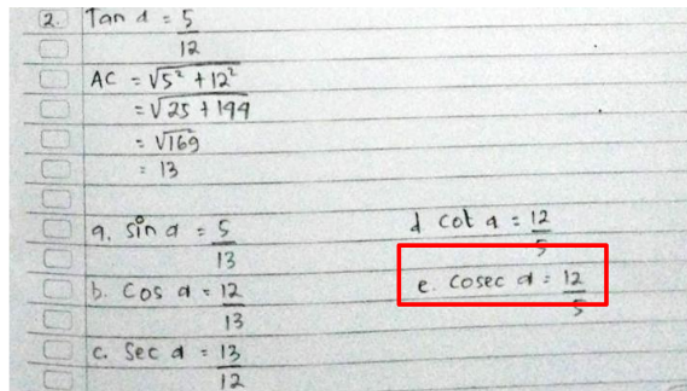 2. Tan α = 5/12
AC = √5² + 12²
= √25 + 144
= √169
= 13
a. sin α = 5/13
b. Cos α = 12/13
c. Sec α = 13/12
d cot α = 12/5
e. Cosec α = 12/5